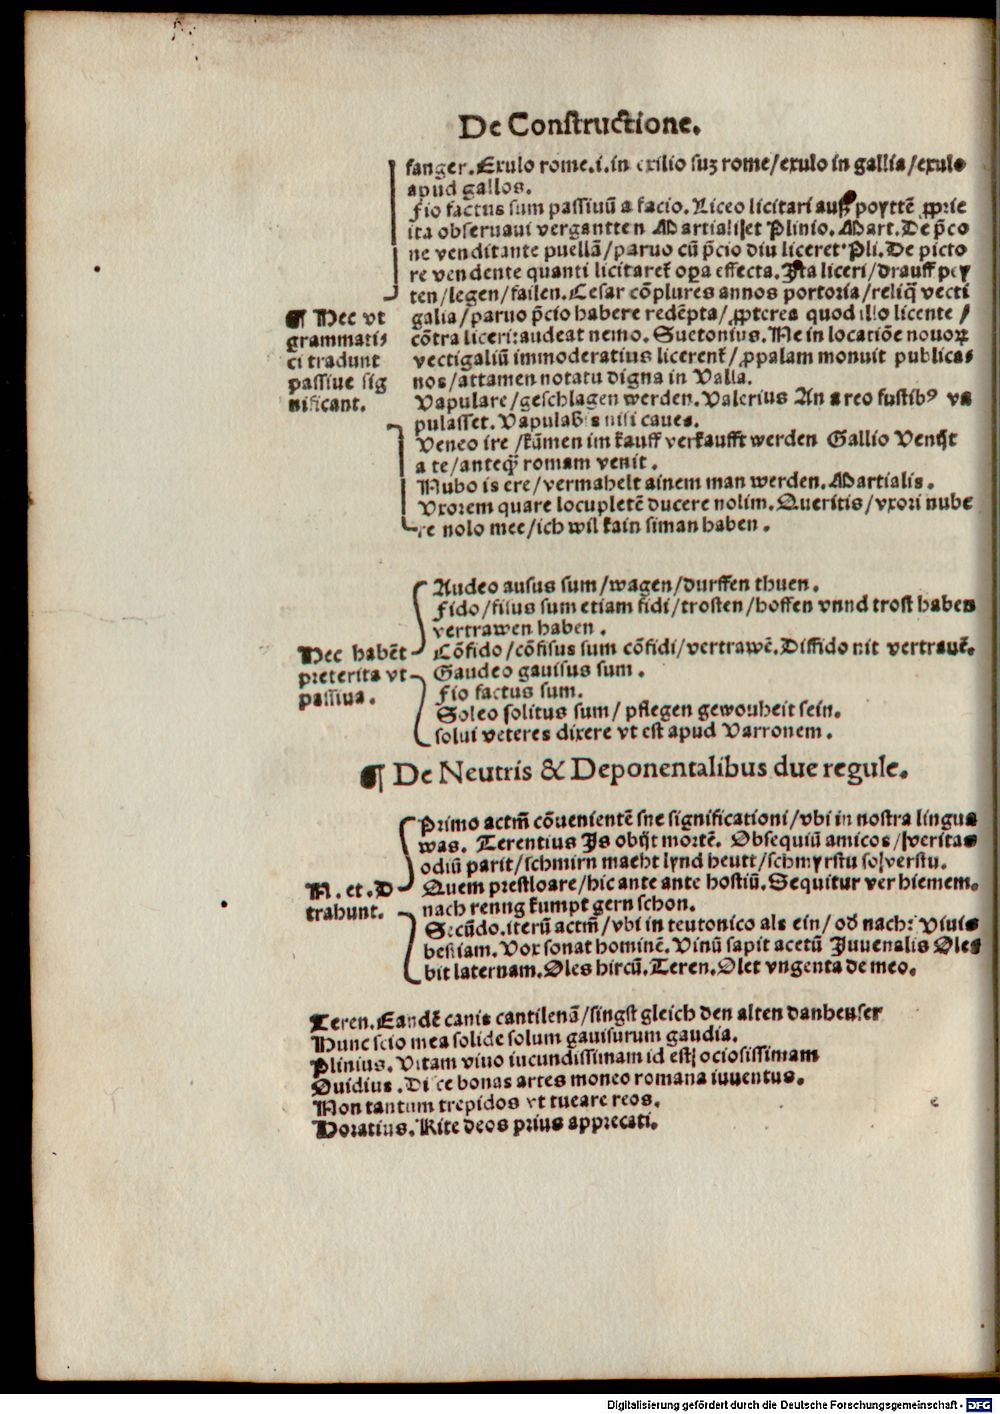 De Constructione.
fanger. Exulo rome .i. in exilio suꝫ rome/exulo in gallia/exulo
apud gallos.
Fio factus sum passiuū a facio. Liceo licitari auff poyttē ꝓprie
ita obseruaui vergantten Martialiſet Plinio. Mart. De p̄co
ne venditante puellā/paruo cū p̄cio diu liceret Pli. De picto
re vendente quanti licitaret̄ oꝑa effecta. Ita liceri/drauff pey
ten/legen/failen. Cesar cōplures annos portoria/reliq̄ vecti
¶ Hec vt
grammati-
ci tradunt
passiue sig
nificant.
galia/paruo p̄cio habere redēpta/ꝓpterea quod illo licente /
cōtra liceri: audeat nemo. Suetonius. Ne in locatiōe nouoꝝ
vectigaliū immoderatius licerent̄/ꝓpalam monuit publica-
nos/attamen notatu digna in Valla.
Vapulare/geschlagen werden. Valerius An a reo fustibꝰ va
pulasset. Vapulabis nisi caues.
Veneo ire /kūmen im kauff verkaufft werden Gallio Venijt
a te/anteq̄ romam venit.
Nubo is ere/vermahelt ainem man werden. Martialis.
Vxorem quare locupletē ducere nolim. Queritis/vxori nube
re nolo mee/ich wil kain siman haben.
Hec habēt
preterita vt
passiua.
Audeo ausus sum/wagen/durffen thuen.
Fido/fisus sum etiam fidi/trosten/hoffen vnnd trost haben
vertrawen haben.
Cōfido/cōfisus sum cōfidi/vertrawē. Diffido nit vertrauē.
Gaudeo gauisus sum.
Fio factus sum.
Soleo solitus sum/ pflegen gewouheit sein.
solui veteres dixere vt est apud Varronem.
¶ De Neutris & Deponentalibus due regule.
N. et. D
trahunt.
Primo actm̄ cōuenientē sne significationi/vbi in nostra lingua
was. Terentius Is obijt mortē. Obsequiū amicos/veritas
odiū parit/schmirn macht fynd heutt/schmyrstu so verstu.
Quem prestloare/hic ante ante hostiū. Sequitur ver hiemem.
nach renng kumpt gern schon.
Secūdo. iterū actm̄/vbi in teutonico als ein/ od nach: Viuis
bestiam. Vox sonat hominē. Vinū sapit acetū Juuenalis Oles
bit laternam. Oles hircū. Teren. Olet vngenta de meo.
Teren. Eandē canis cantilenā/singst gleich den alten danheuser
Hunc scio mea solide solum gauisurum gaudia.
Plinius. Vitam viuo iucundissimam id est ociosissimam
Quidius. Disce bonas artes moneo romana iuuentus.
Non tantum trepidos vt tueare reos.
Horatius. Rite deos prius apprecati.
Digitalisierung gefördert durch die Deutsche Forschungsgemeinschaft - DFG